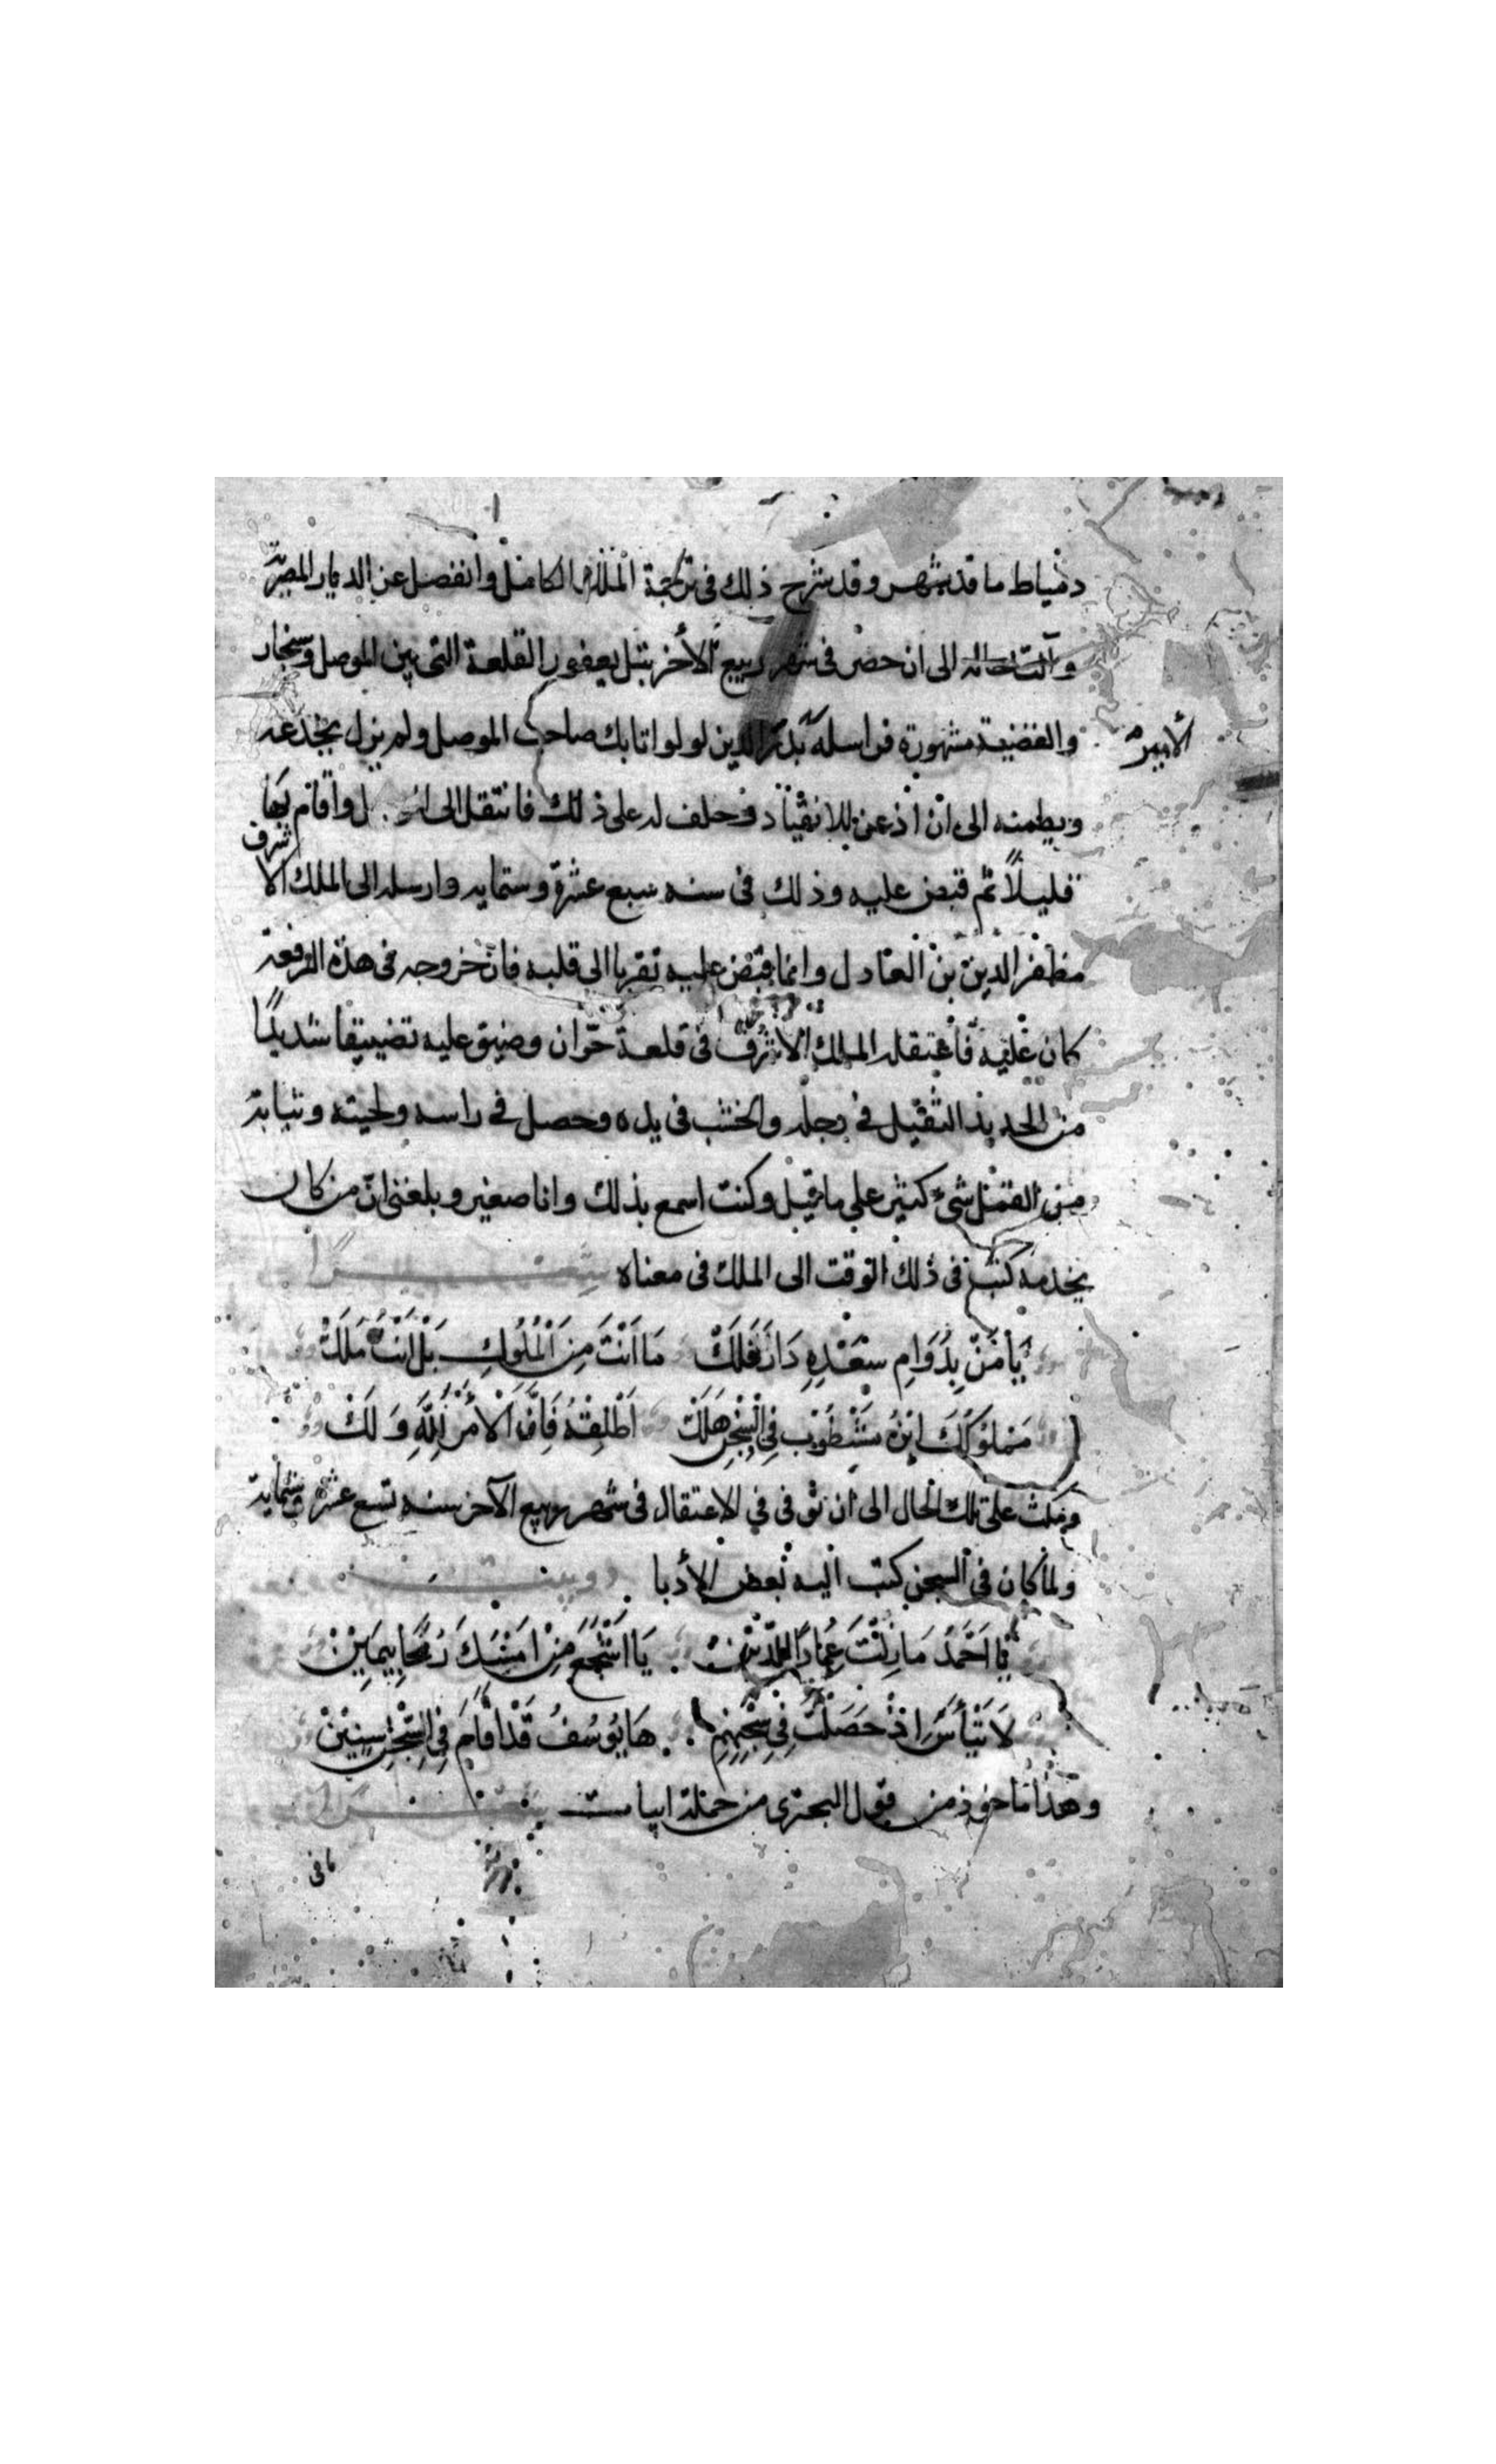 دمياط ما قد شهر وقد شرح ذلك في ترجمة الملك الكامل وانفصل عن الديار المصرية
وآلت حاله الى ان حضر في شهر ربيع الآخر بتل يعفور القلعة التي بين الموصل وسنجار
والقضية مشهورة فراسله بدر الدين لولو اتابك صاحب الموصل ولم يزل يخدعه
الأمير
ويطمنه الى ان اذعن للانقياد وحلف له على ذلك فانتقل الى وأقام بها
قليلاً ثم قبض عليه وذلك في سنه سبع عشرة وستمايه وارسله الى الملك الاشرف
مظفر الدين بن العادل وانما قبض عليه تقربا الى قلبه فان خروجه في هذه الدفعه
كان عليه فاعتقله الملك الاشرف في قلعة حرّان وضيق عليه تضييقا شديدًا
من الحديد الثقيل في رجله والخشب في يده وحصل في راسه ولحيته وثيابه
من القمل شيء كثير على ما قيل وكنت اسمع بذلك وانا صغير وبلغني انّ من كان
يخدمه كتب في ذلك الوقت الى الملك في معناه شعرًا
يَا مَنْ بِدَوَامِ سَعْدِهِ دَارَ فَلَكْ مَا اَنْتَ مِنَ الْمُلُوكِ بَلْ اَنْتَ مَلَكْ
مَمْلُوكُكَ ابْنُ مَشْطُوْبٍ فِي السِّجْنِ هَلَكْ اَطْلِقْهُ فَاِنَّ الْاَمْرَ لِلّٰهِ وَلَكْ
ومكث على تلك الحال الى ان توفى في الاعتقال في شهر ربيع الآخر سنه تسع عشرة وستماية
ولما كان في السجن كتب اليه بعض الأدبا دوبيت
يَا اَحْمَدُ مَا زِلْتَ عِمَادًا لِلدِّيْنْ يَا اَشْجَعَ مَنْ اَمْسَكَ رُمْحًا بِيَمِيْنْ
لَا تَيْأَسَ اِذْ حَصَلْتَ فِي سِجْنِهِمِ هَا يُوْسُفُ قَدْ اَقَامَ فِي السِّجْنِ سِنِيْنْ
وهذا ماخوذ من قول البحتري من جملة ابيات
مافي